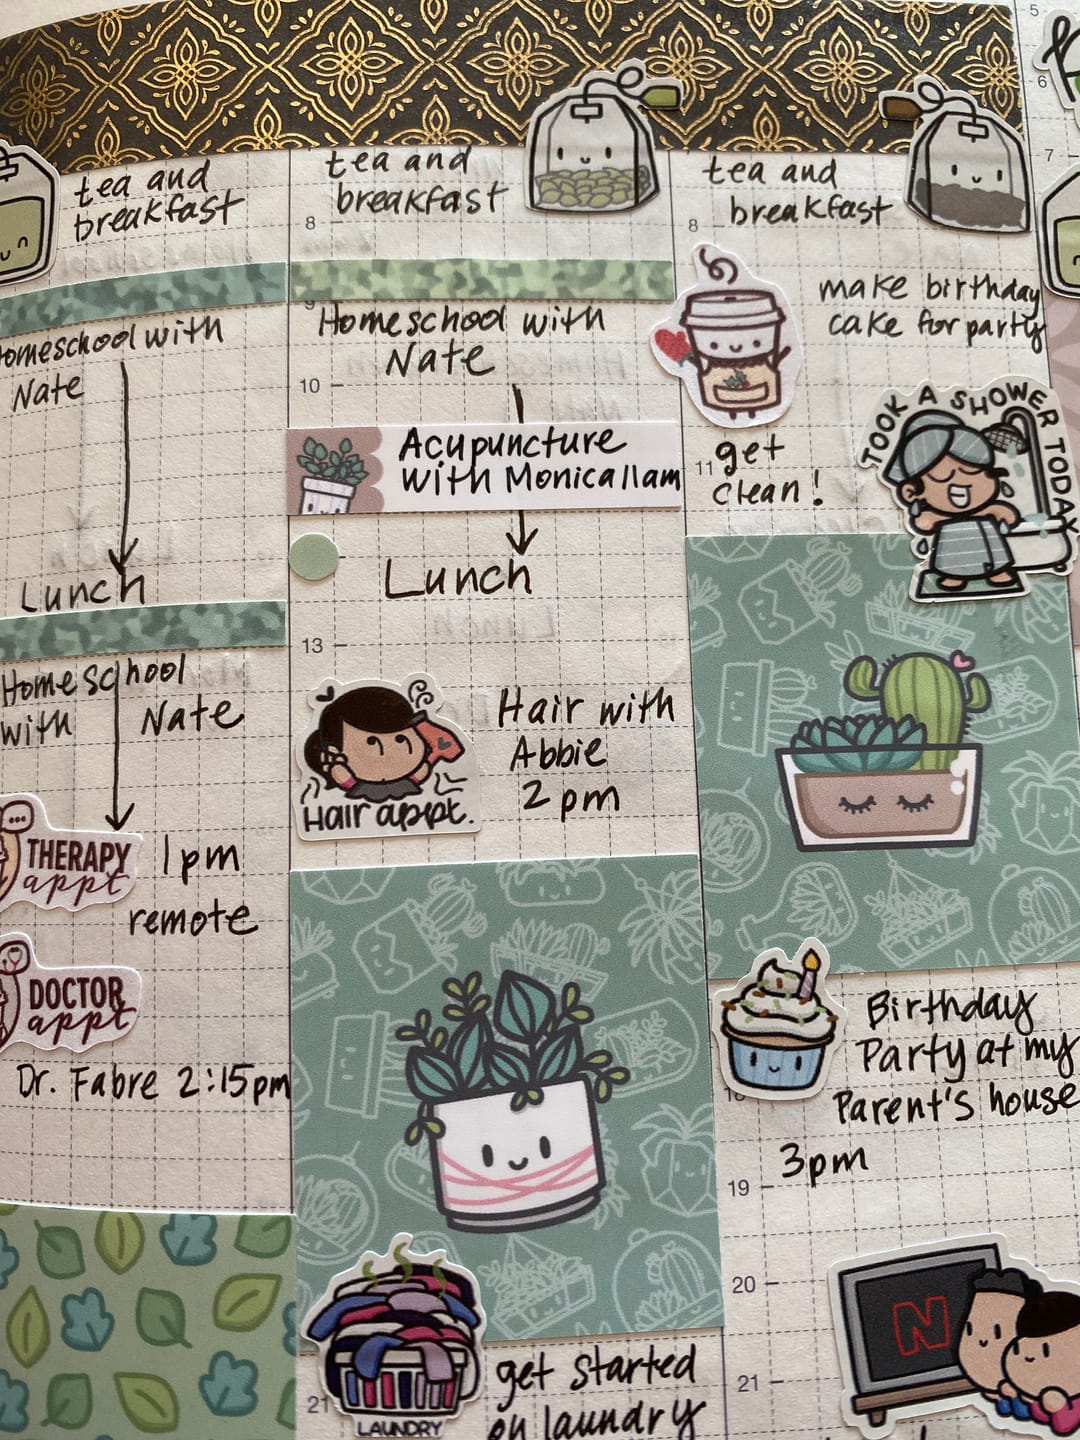 tea and
breakfast
Homeschool with
Nate
Lunch
Homeschool
with Nate
THERAPY
appt
1pm
remote
DOCTOR
appt
Dr. Fabre 2:15pm
tea and
breakfast
8
9
Homeschool with
Nate
10
Acupuncture
with Monica 11am
Lunch
13
Hair appt.
Hair with
Abbie
2pm
21
LAUNDRY
get started
on laundry
tea and
breakfast
8
make birthday
cake for party
TOOK A SHOWER TODAY
11
get
clean!
Birthday
Party at my
Parent's house
3pm
19
20
N
21
5
6
7